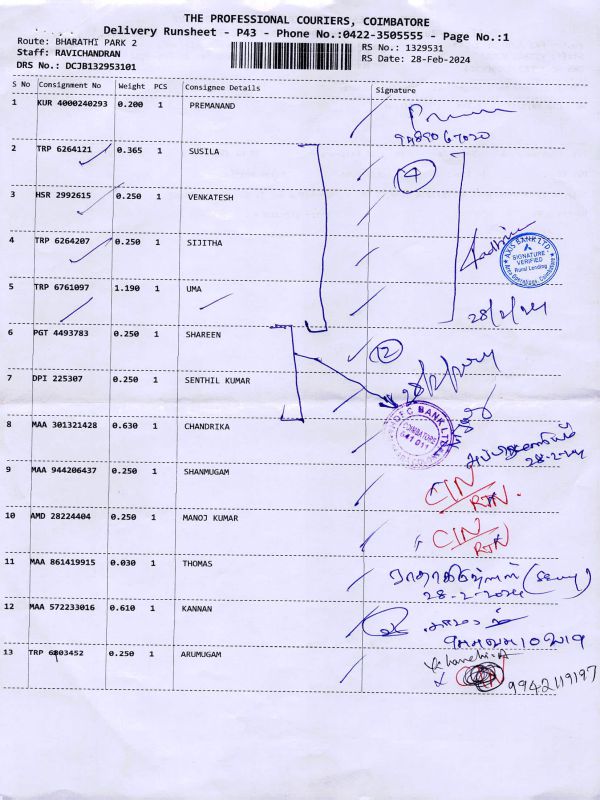 THE PROFESSIONAL COURIERS, COIMBATORE
Delivery Runsheet - P43 - Phone No.:0422-3505555 - Page No.:1
Route: BHARATHI PARK 2
Staff: RAVICHANDRAN
DRS No.: DCJB132953101
RS No.: 1329531
RS Date: 28-Feb-2024
S No Consignment No Weight PCS Consignee Details Signature
1 KUR 4000240293 0.200 1 PREMANAND
2 TRP 6264121 0.365 1 SUSILA
4
3 HSR 2992615 0.250 1 VENKATESH
4 TRP 6264207 0.250 1 SIJITHA
AXIS BANK LTD.
SIGNATURE VERIFIED
Rural Lending
5 TRP 6761097 1.190 1 UMA
28/2/24
6 PGT 4493783 0.250 1 SHAREEN
2
7 DPI 225307 0.250 1 SENTHIL KUMAR
8 MAA 301321428 0.630 1 CHANDRIKA
HDFC BANK LTD
COIMBATORE
641 011
28-2-24
9 MAA 944206437 0.250 1 SHANMUGAM
CIN/RTN.
10 AMD 28224404 0.250 1 MANOJ KUMAR
CIN/RTN
11 MAA 861419915 0.030 1 THOMAS
28-2-2024
12 MAA 572233016 0.610 1 KANNAN
13 TRP 6803452 0.250 1 ARUMUGAM
9942119197